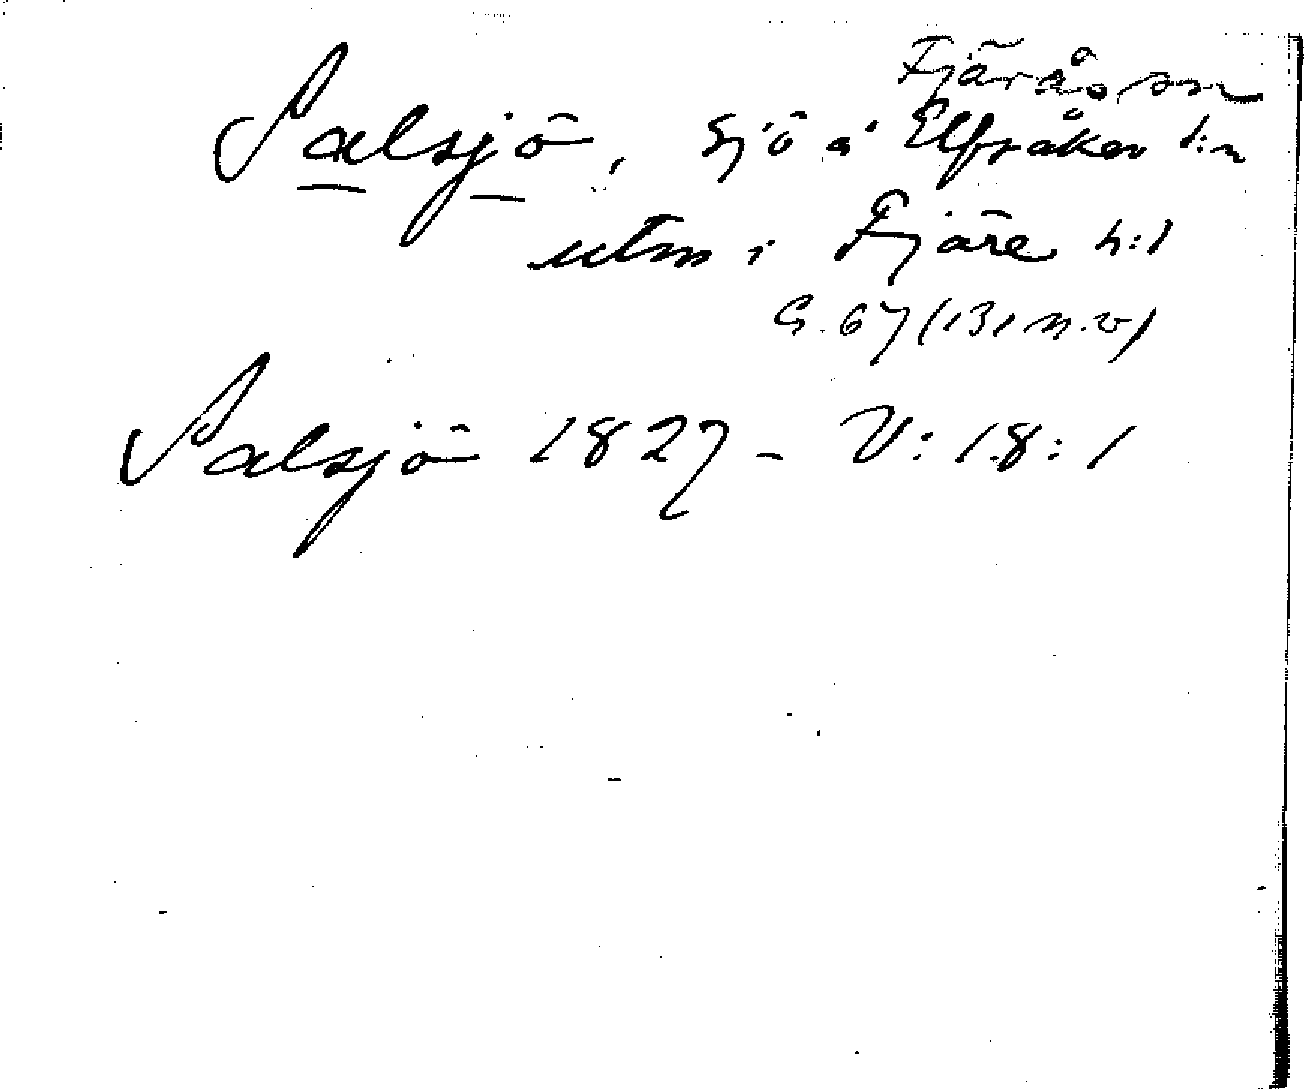 Fjärås sn
Salsjö, sjö å Elfsåker 1:n
utm i Fjäre h:d
G. 67 (131 n.v)
Salsjö 1827 - V: 18: 1